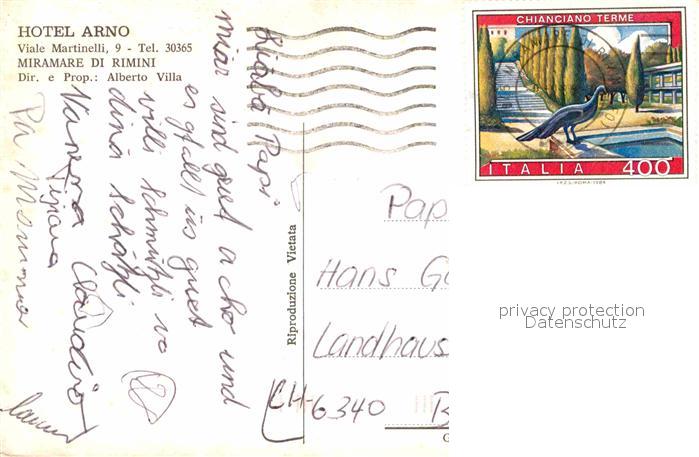 HOTEL ARNO
Viale Martinelli, 9 - Tel. 30365
MIRAMARE DI RIMINI
Dir. e Prop.: Alberto Villa
Papi
miar sind guet a cho und
es gfallt üs guet
villi Schmützli vo
dina Schätzli
Claudio
Riproduzione Vietata
CHIANCIANO TERME
ITALIA 400
I.P.Z.S.-ROMA-1984
Pap
Hans G
Landhaus
CH-6340 B
G
privacy protection
Datenschutz